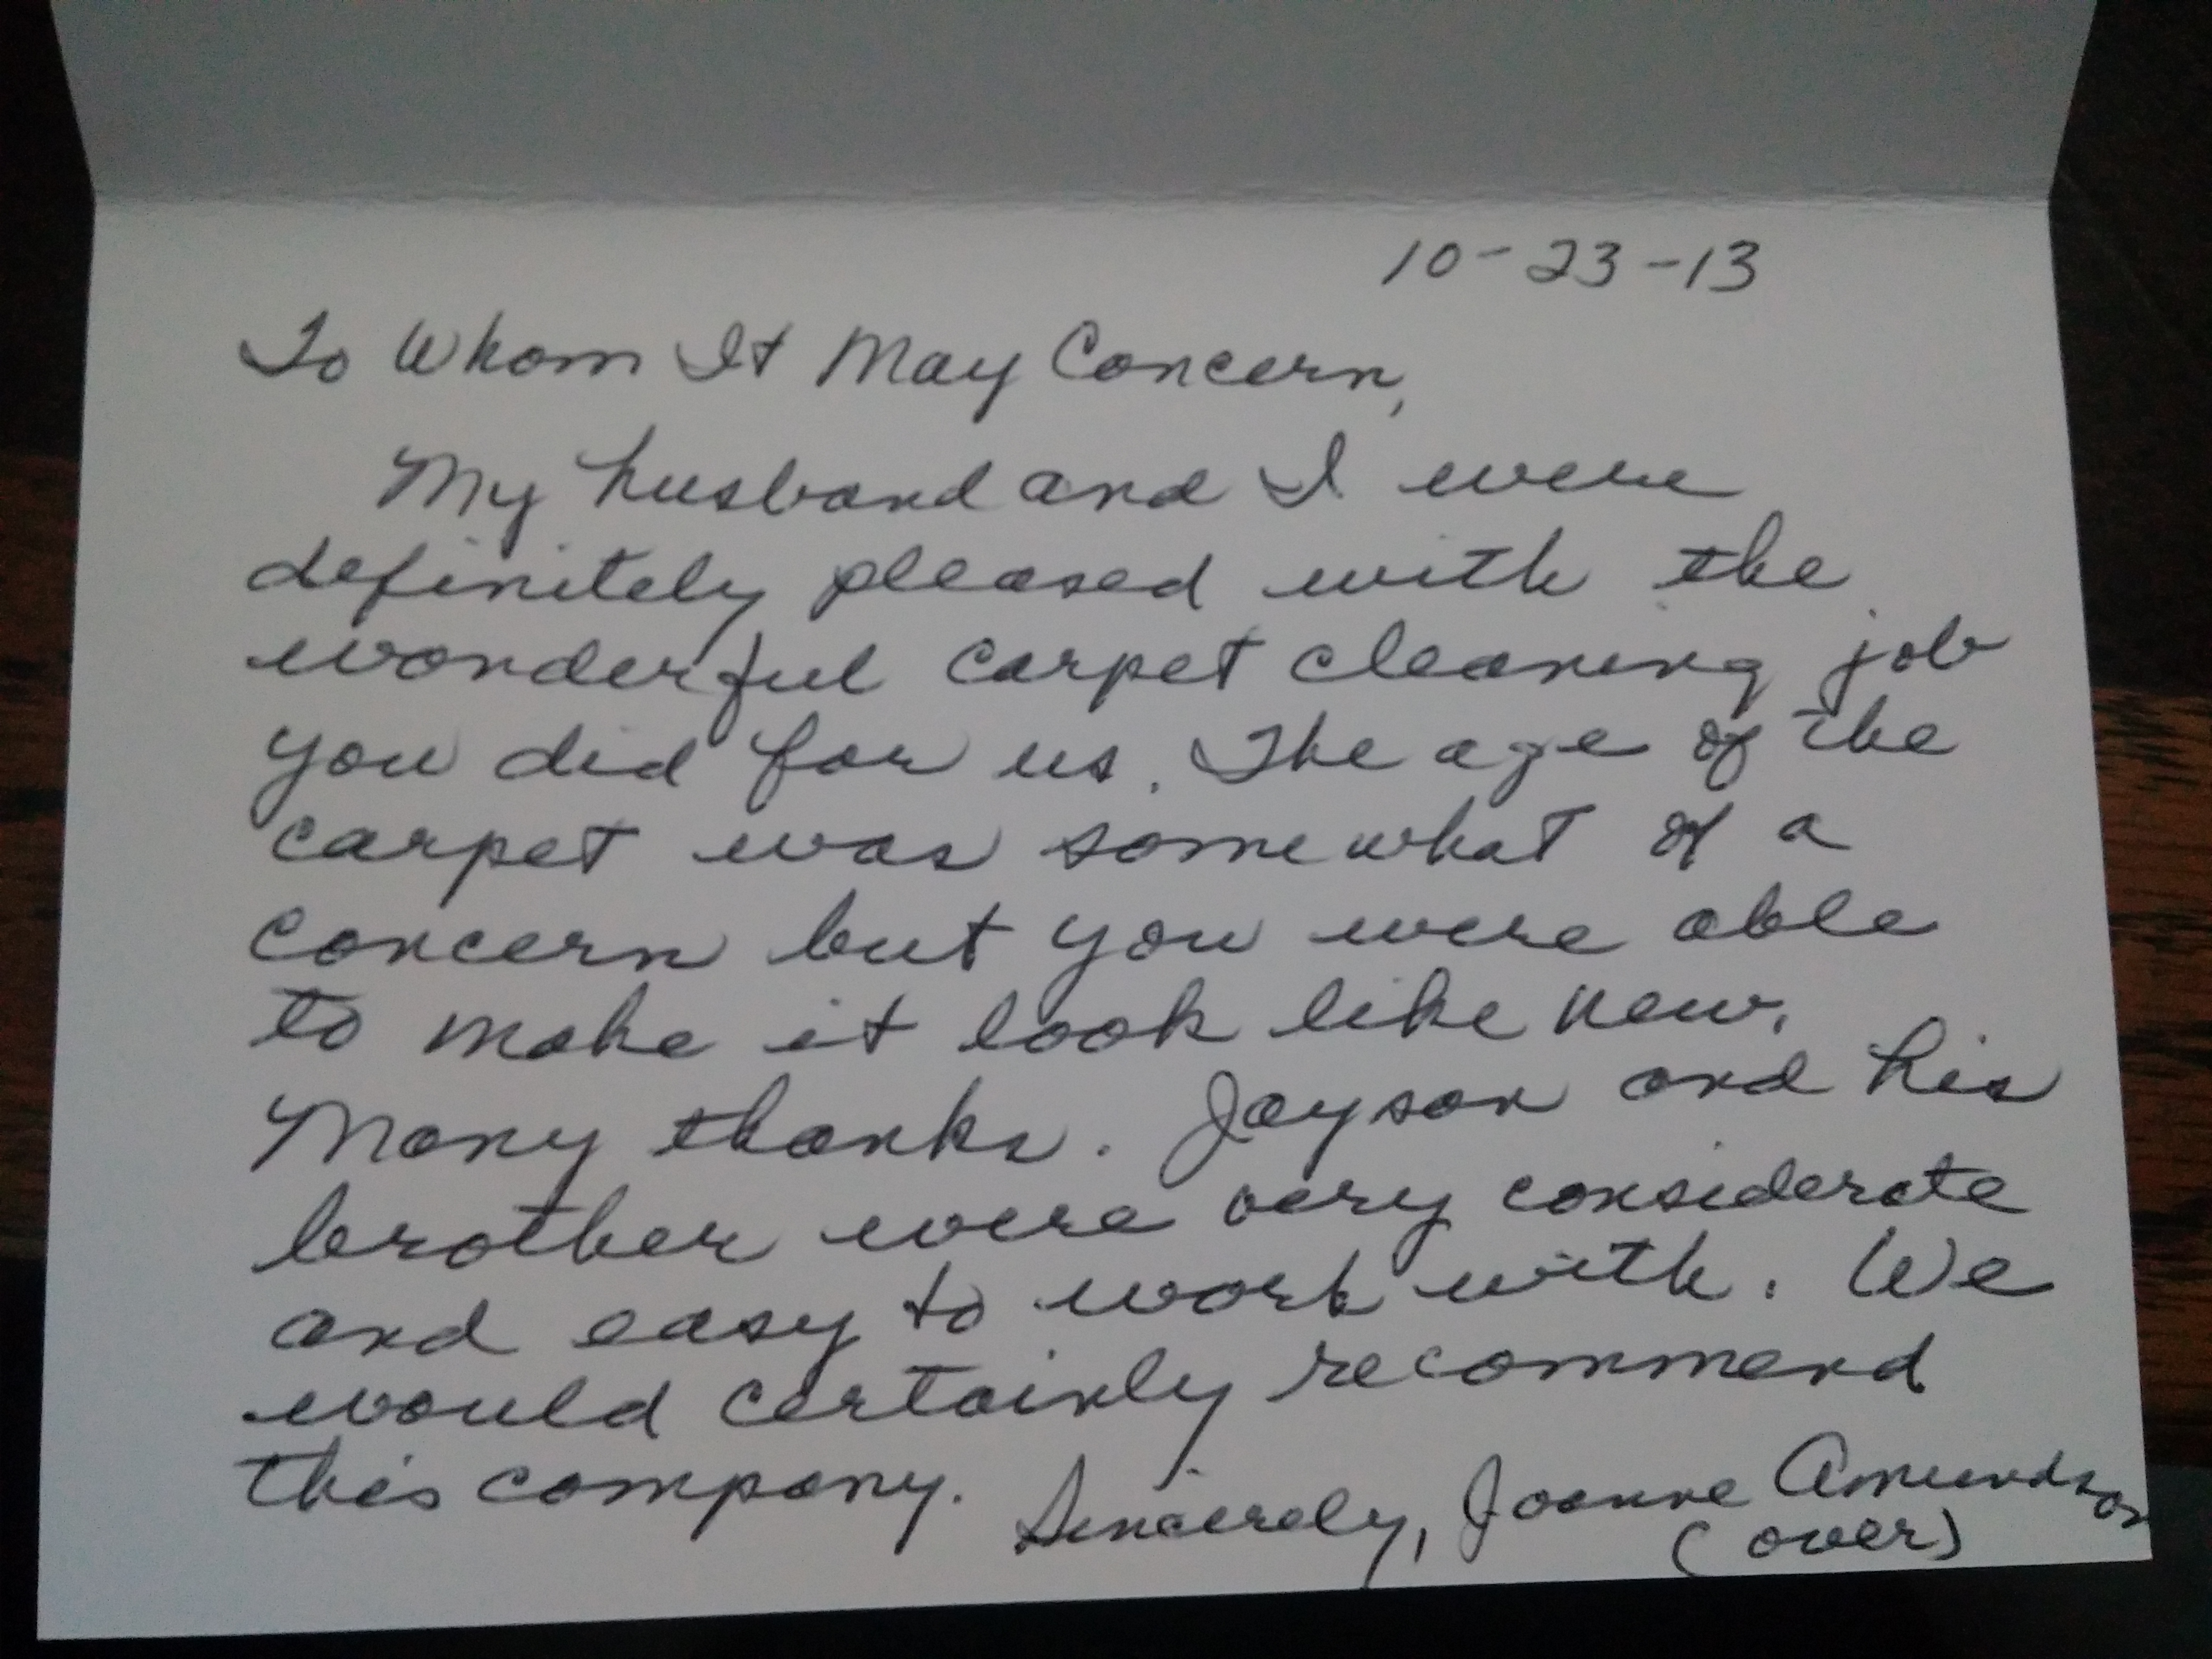 10-23-13
To Whom It May Concern,
My husband and I were
definitely pleased with the
wonderful carpet cleaning job
you did for us. The age of the
carpet was somewhat of a
concern but you were able
to make it look like new.
Many thanks. Jayson and his
brother were very considerate
and easy to work with. We
would certainly recommend
this company. Sincerely, Joanne Amundson
(over)